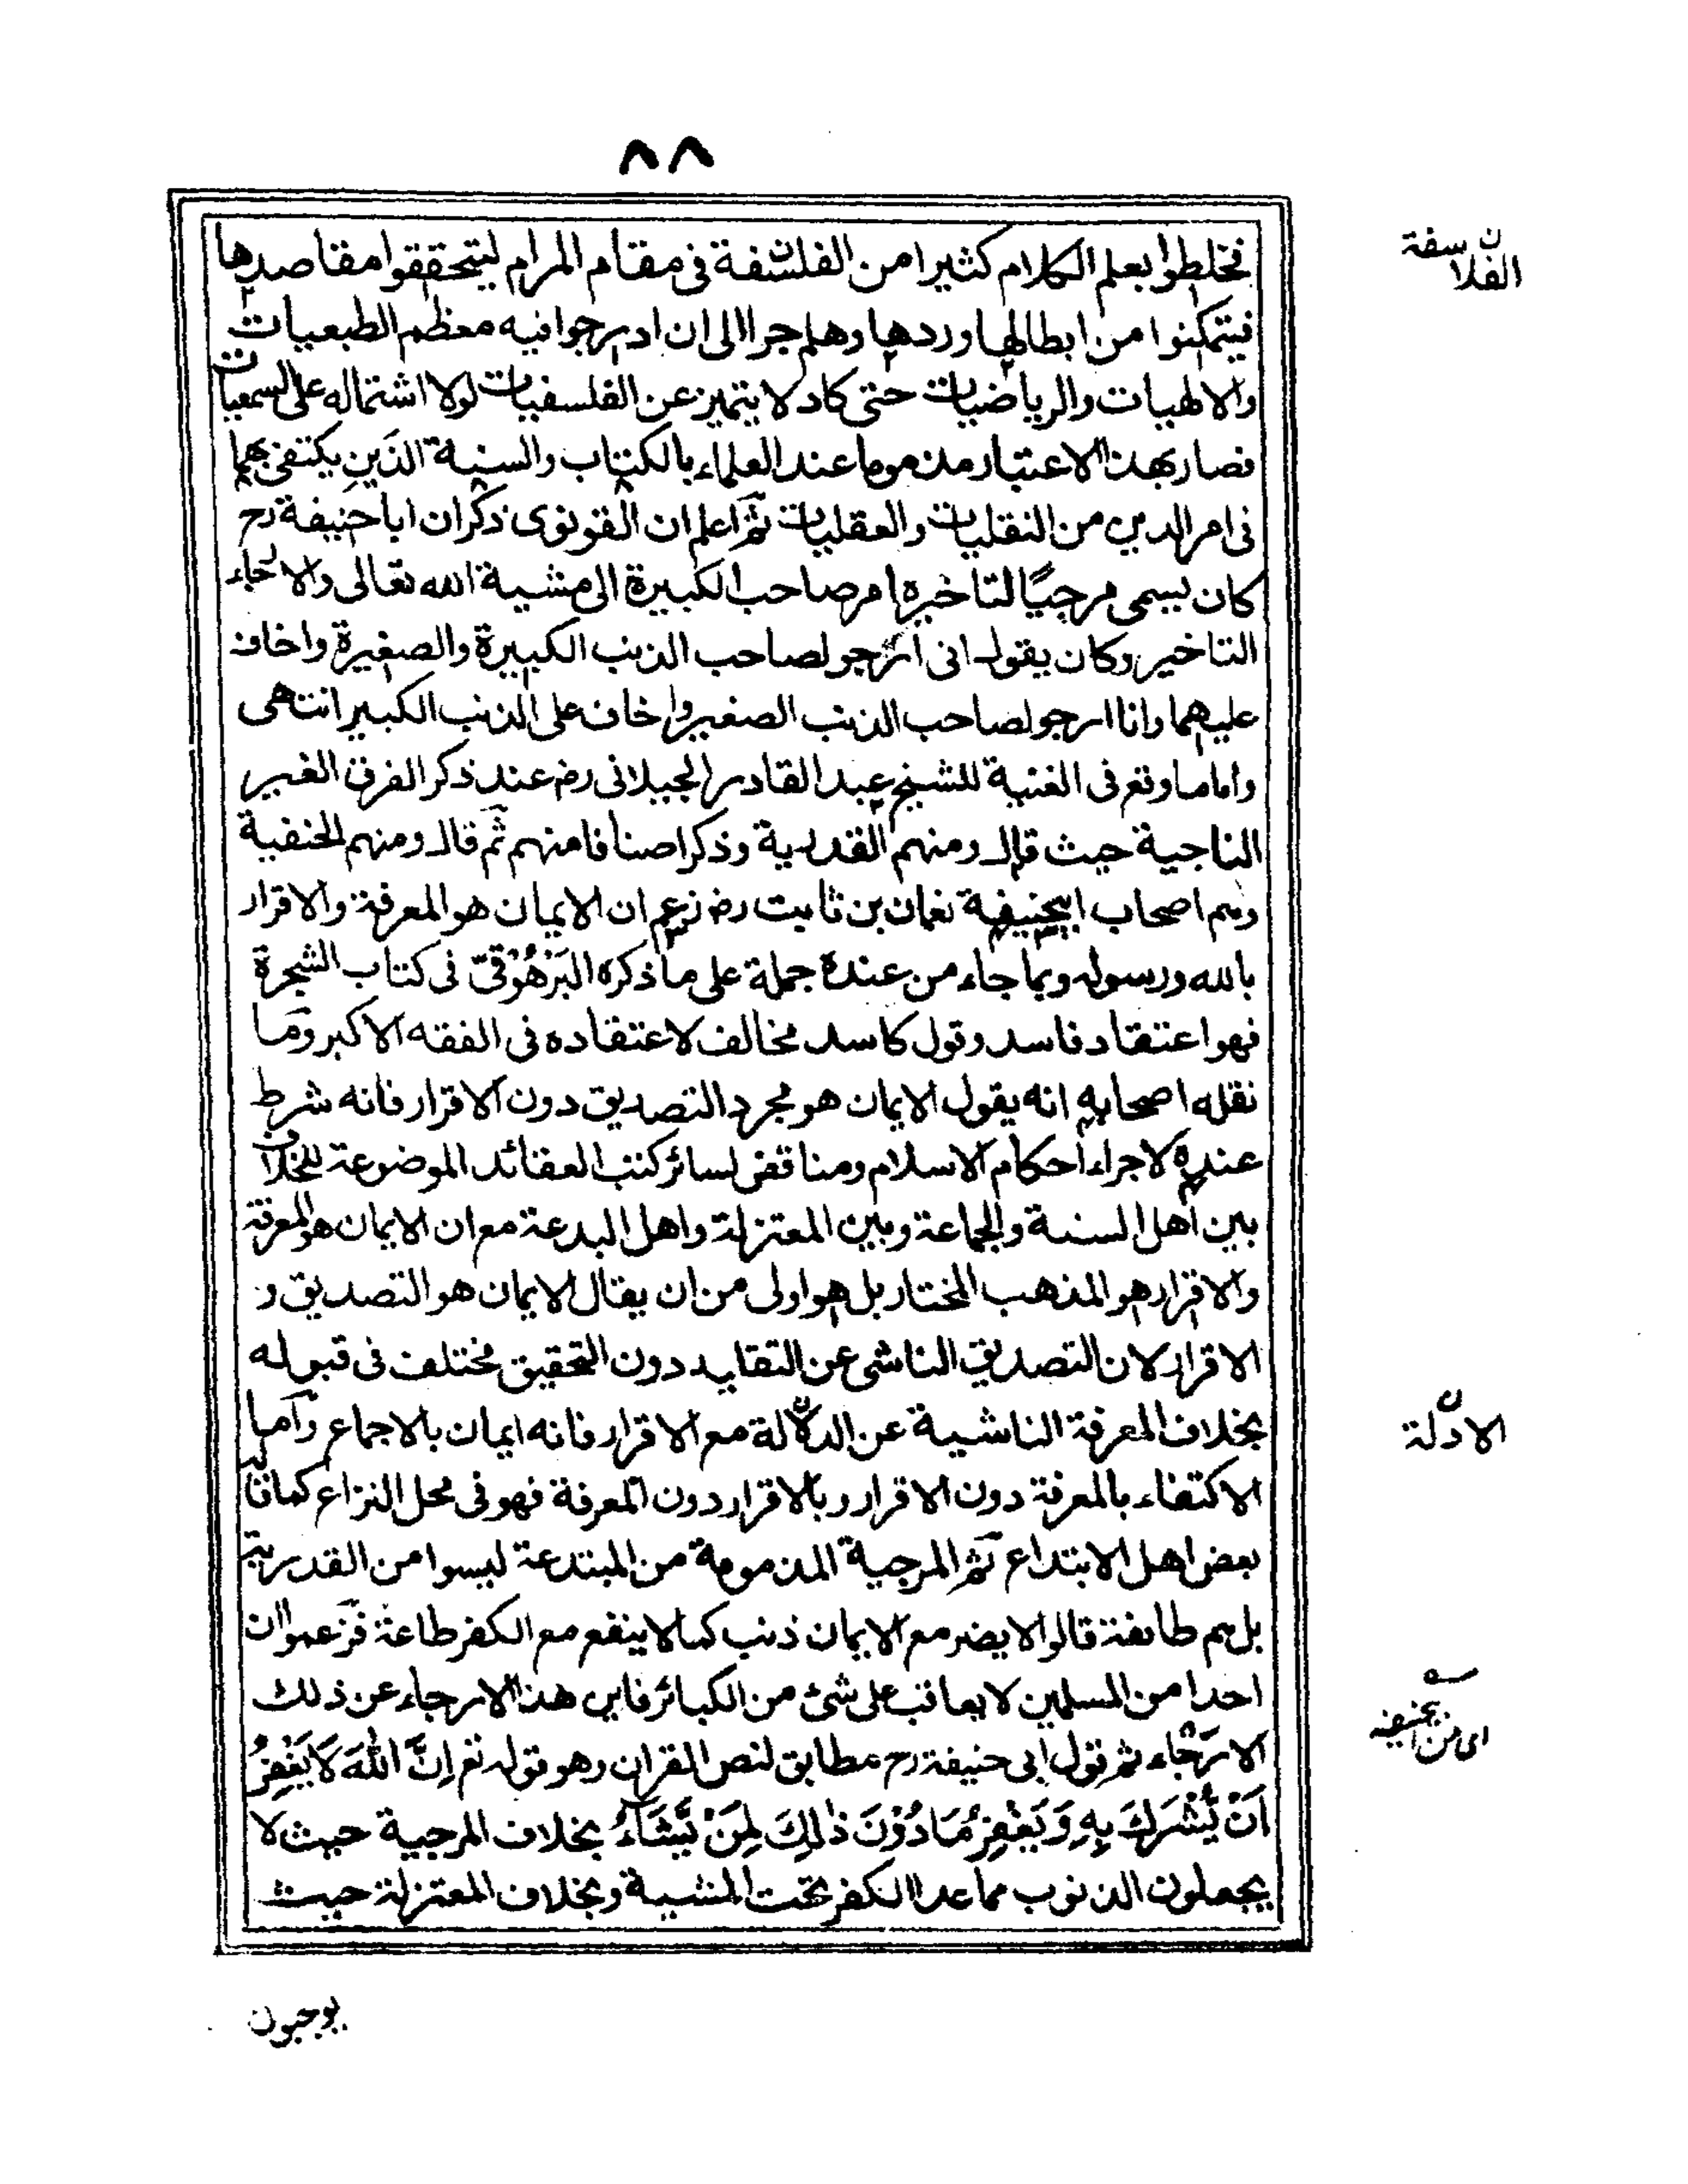 ٨٨
فخلطوا بعلم الكلام كثيرا من الفلسفة فى مقام المرام ليتحققوا مقاصدها
فيتمكنوا من ابطالها وردها وهلم جرا الى ان ادرجوا فيه معظم الطبعيات
والالهيات والرياضيات حتى كاد لا يتميز عن الفلسفيات لولا اشتماله على السمعيات
فصار بهذا الاعتبار مذموما عند العلماء بالكتاب والسنة الذين يكتفى بهما
فى امر الدين من النقليات والعقليات ثم اعلم ان القونوى ذكر ان ابا حنيفة رح
كان يسمى مرجيًا لتاخيره امر صاحب الكبيرة الى مشية الله تعالى والارجاء
التاخير وكان يقول انى ارجو لصاحب الذنب الكبيرة والصغيرة واخاف
عليهما وانا ارجو لصاحب الذنب الصغير واخاف على الذنب الكبير انتهى
واما ما وقع فى الغنية للشيخ عبد القادر الجيلانى رض عند ذكر الفرق الغير
الناجية حيث قال ومنهم القدرية وذكر اصنافا منهم ثم قال ومنهم الحنفية
وهم اصحاب ابيحنيفة نعمان بن ثابت رض زعم ان الايمان هو المعرفة والاقرار
بالله ورسوله وبما جاء من عنده جملة على ما ذكره البَرْهُوْقىّ فى كتاب الشجرة
فهو اعتقاد فاسد وقول كاسد مخالف لاعتقاده فى الفقه الاكبر وما
نقله اصحابه انه يقول الايمان هو مجرد التصديق دون الاقرار فانه شرط
عنده لاجراء احكام الاسلام ومناقض لسائر كتب العقائد الموضوعة للخلاف
بين اهل السنة والجماعة وبين المعتزلة واهل البدعة مع ان الايمان هو المعرفة
والاقرار هو المذهب المختار بل هو اولى من ان يقال الايمان هو التصديق و
الاقرار لان التصديق الناشى عن التقليد دون التحقيق مختلف فى قبوله
بخلاف المعرفة الناشية عن الدلالة مع الاقرار فانه ايمان بالاجماع واما
الاكتفاء بالمعرفة دون الاقرار وبالاقرار دون المعرفة فهو فى محل النزاع كما قاله
بعض اهل الابتداع ثم المرجية المذمومة من المبتدعة ليسوا من القدرية
بل هم طائفة قالوا لا يضر مع الايمان ذنب كما لا ينفع مع الكفر طاعة فزعموا ان
احدا من المسلمين لا يعاقب على شئ من الكبائر فاين هذا الارجاء عن ذلك
الارجاء ثم قول ابى حنيفة رح مطابق لنص القران وهو قوله تع اِنَّ اللّٰهَ لَا يَغْفِرُ
اَنْ يُّشْرَكَ بِهٖ وَيَغْفِرُ مَا دُوْنَ ذٰلِكَ لِمَنْ يَّشَاءُ بخلاف المرجية حيث لا
يجعلون الذنوب مما عدا الكفر تحت المشية وبخلاف المعتزلة حيث
يوجبون
الفلاسفة ن
الادلة ن
اى من ابيحنيفة